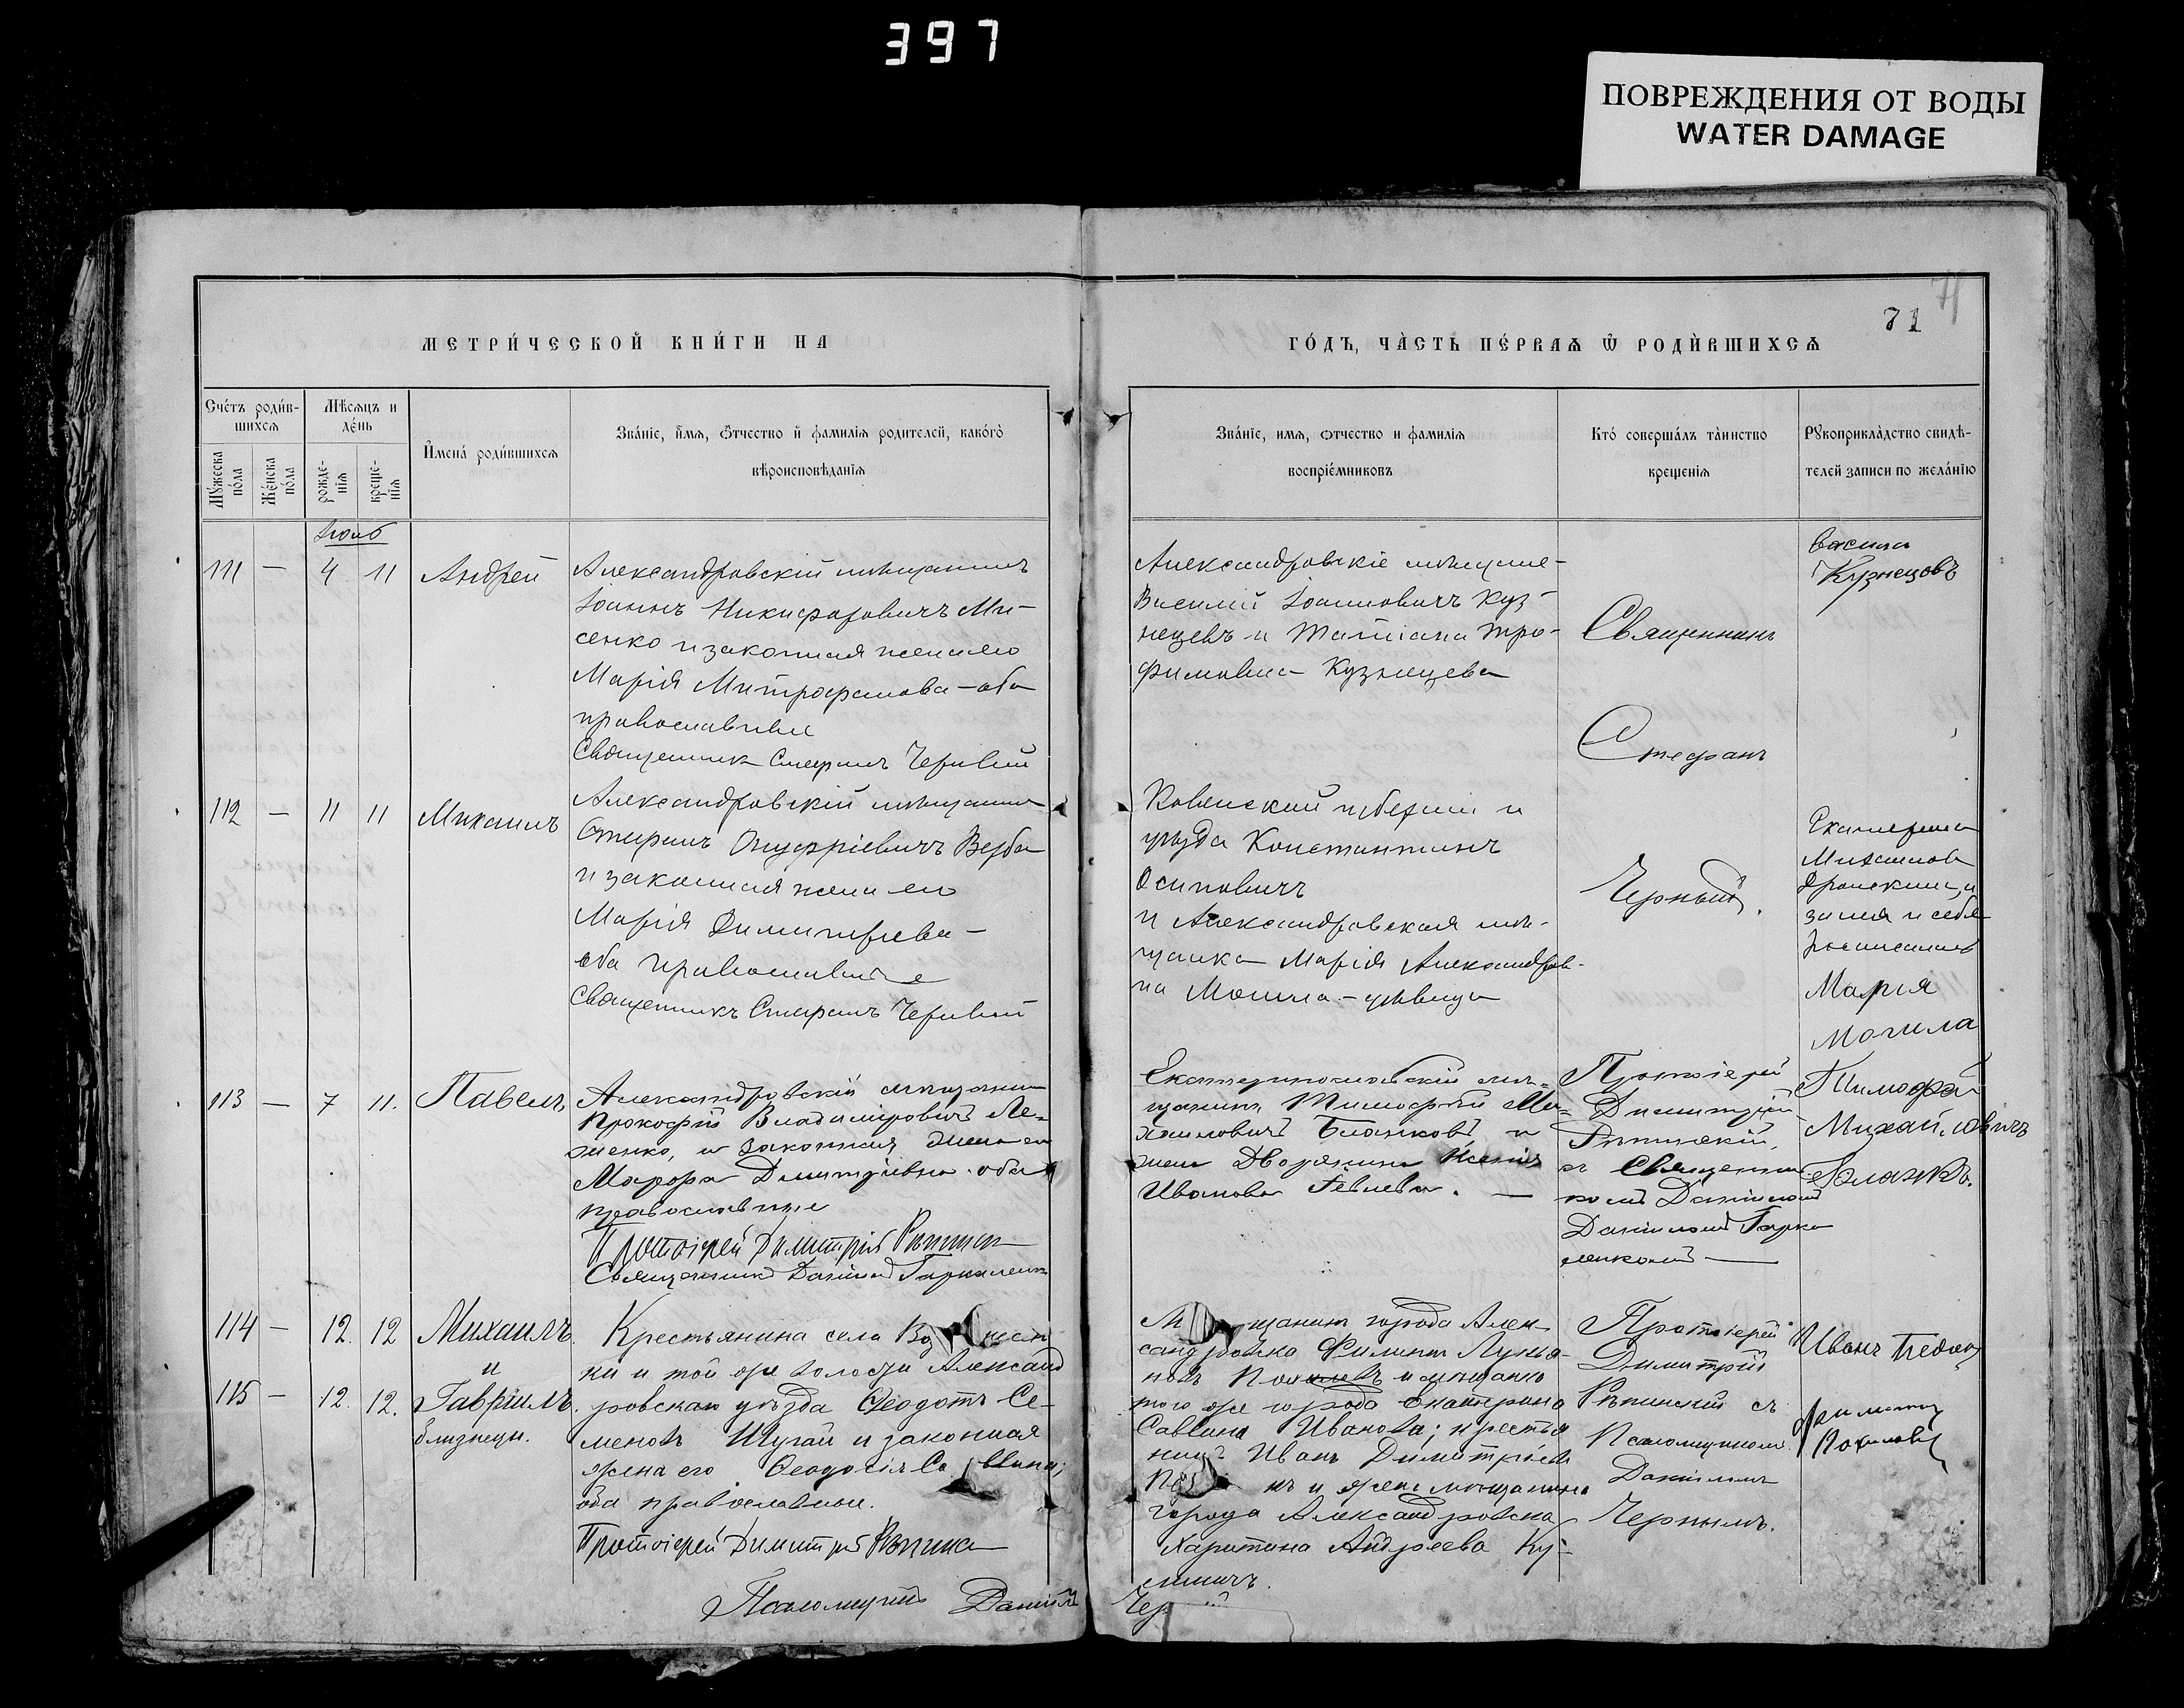 397
ПОВРЕЖДЕНИЯ ОТ ВОДЫ
WATER DAMAGE
71
МЕТРИ́ЧЕСКОЙ КНИ́ГИ НА
ГО́ДЪ, ЧА̀СТЬ ПЕ́РВАѦ Ѡ҆ РОДИ́ВШИХСѦ
Сче́тъ роди́в-
шихсѧ
Мѣсѧцъ и
де́нь
И҆мена̀ роди́вшихсѧ
Зва́нїе, и҆́мѧ, ѻ҆́тчество и҆ фамилїѧ родителей, како́гѡ
вѣроисповѣданїѧ
Мꙋ́жеска
по́ла
Же́нска
по́ла
рожде-
нїѧ
креще-
нїѧ
Зва́нїе, имѧ, ѻтчество и фамилїѧ
воспрїе́мниковъ
Кто́ соверша́лъ та́инство
крещенїѧ
Рꙋкоприкла́дство свидѣ-
телей записи по жела́нїю
111 — 4 11 Андрей
Александровскій мѣщанинъ
Іоаннъ Никифоровичъ Ми-
сенко и законная жена его
Марія Митрофанова - оба
православные
Священникъ Стефанъ Черный
Александровскіе мѣщане-
Василій Іоанновичъ Куз-
нецевъ и Татіана Тро-
фимовна Кузнецева
Священникъ
Стефанъ
Черный.
Кузнецовъ
112 — 11 11 Михаилъ
Александровскій мѣщанинъ
Стефанъ Онуфріевичъ Верба
и законная жена его
Марія Димитріева -
оба православные
Священникъ Стефанъ Черный
Ковенской губерніи и
уѣзда Константинъ
Осиповичъ
и Александровская мѣ-
щанка Марія Александров-
на Могила - дѣвица
Екатерина
за нея и себя
Мария
Могила
113 — 7 11. Павелъ
Александровскій мѣщанинъ
Прокофій Владиміровичъ Ле-
женко, и законная жена его
Марфа Димитріевна. оба
православные
Протоіерей Димитрій Рѣпинскій
Священникъ Даніилъ
Екатеринославскій мѣ-
щанинъ Тимофей Ми-
хаиловичъ Бланковъ и
жена Дворянина Ксенія
Иванова
Протоіерей
Димитрій
Рѣпинскій,
съ Священни-
комъ Даніиломъ
Тимофей
Михайловичъ
114 — 12. 12 Михаилъ
и
115 — 12. 12. Гавріилъ.
близнецы.
Крестьянина села
ки и той же волости Александ
ровскаго уѣзда Ѳеодотъ Се-
меновъ Шугай и законная
жена его Ѳеодосія Саввина;
оба православные.
Протоіерей Димитрій Рѣпинскій
Псаломщикъ Даніилъ
Мѣщанинъ города Алек-
сандровска Филиппъ Лукья-
новъ Похилевъ и мѣщанка
того же города Екатерина
Саввина Иванова; крестья
нинъ Иванъ Димитріевъ
и жена мѣщанина
города Александровска
Харитина Андреева
Протоіерей
Димитрій
Рѣпинскій съ
Псаломщикомъ
Даніиломъ
Чернымъ.
Иванъ
Филиппъ
Похилевъ